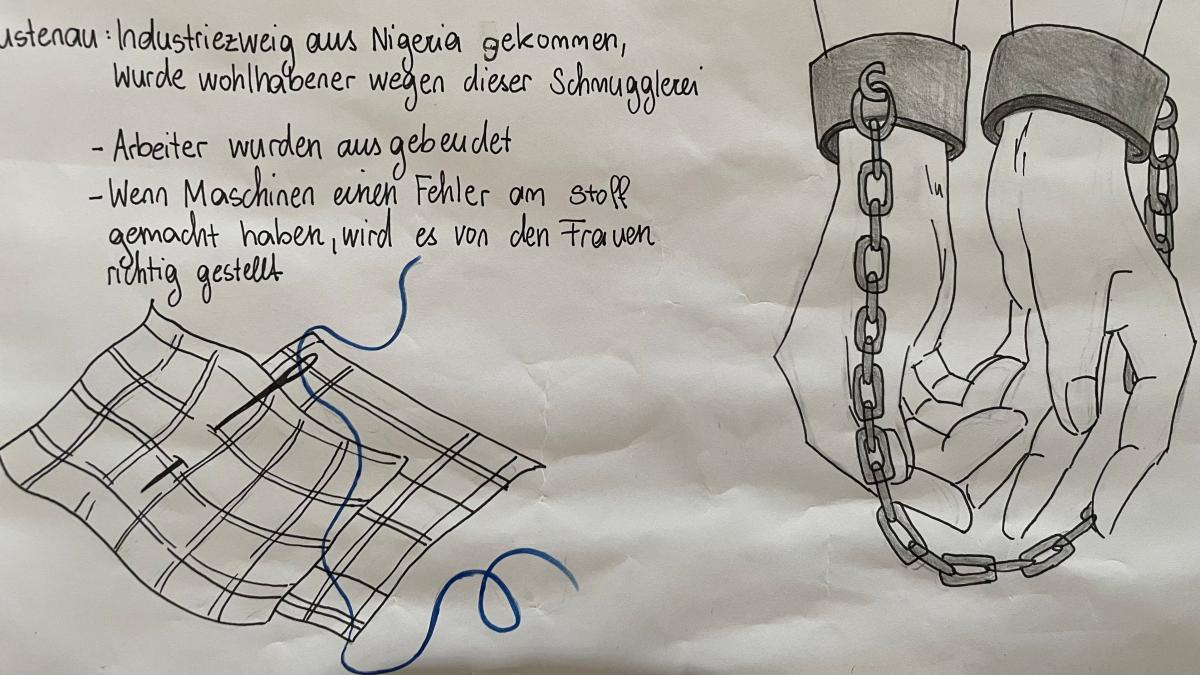 ustenau: Industriezweig aus Nigeria gekommen,
Wurde wohlhabener wegen dieser Schmugglerei
- Arbeiter wurden ausgebeudet
- Wenn Maschinen einen Fehler am Stoff
gemacht haben, wird es von den Frauen
richtig gestellt